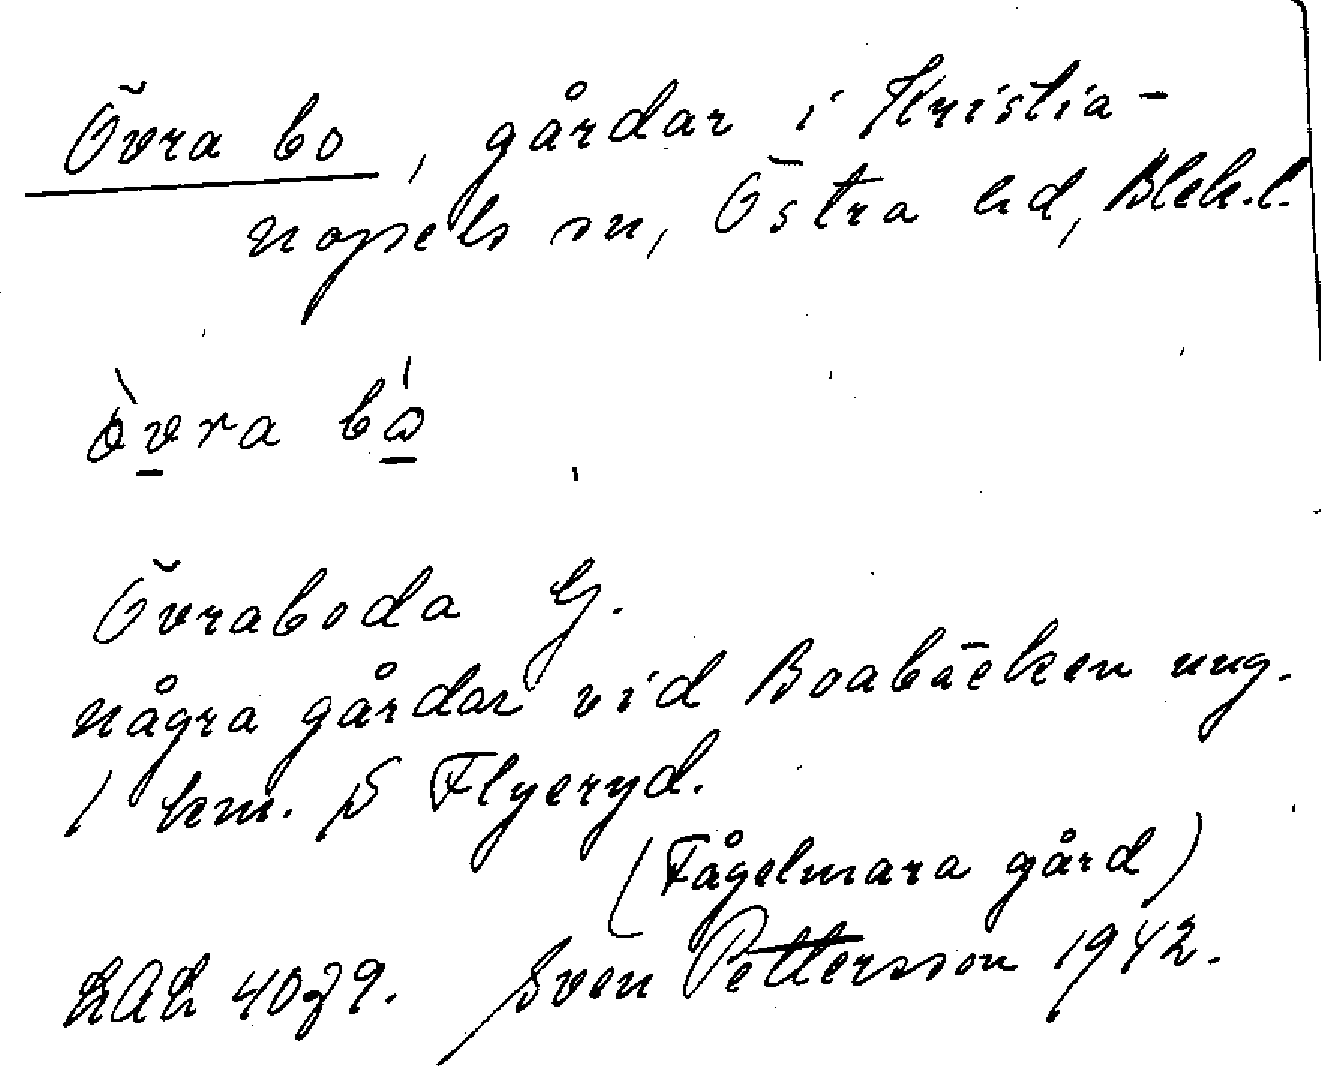 Övra bo, gårdar i Kristia-
nopels sn, Östra hd, Blek.l.
ò̀vra bó
Övraboda G.
några gårdar vid Boabäcken ung.
1 km. S Flyeryd.
(Fågelmara gård)
LAL 4079. Sven Pettersson 1942.